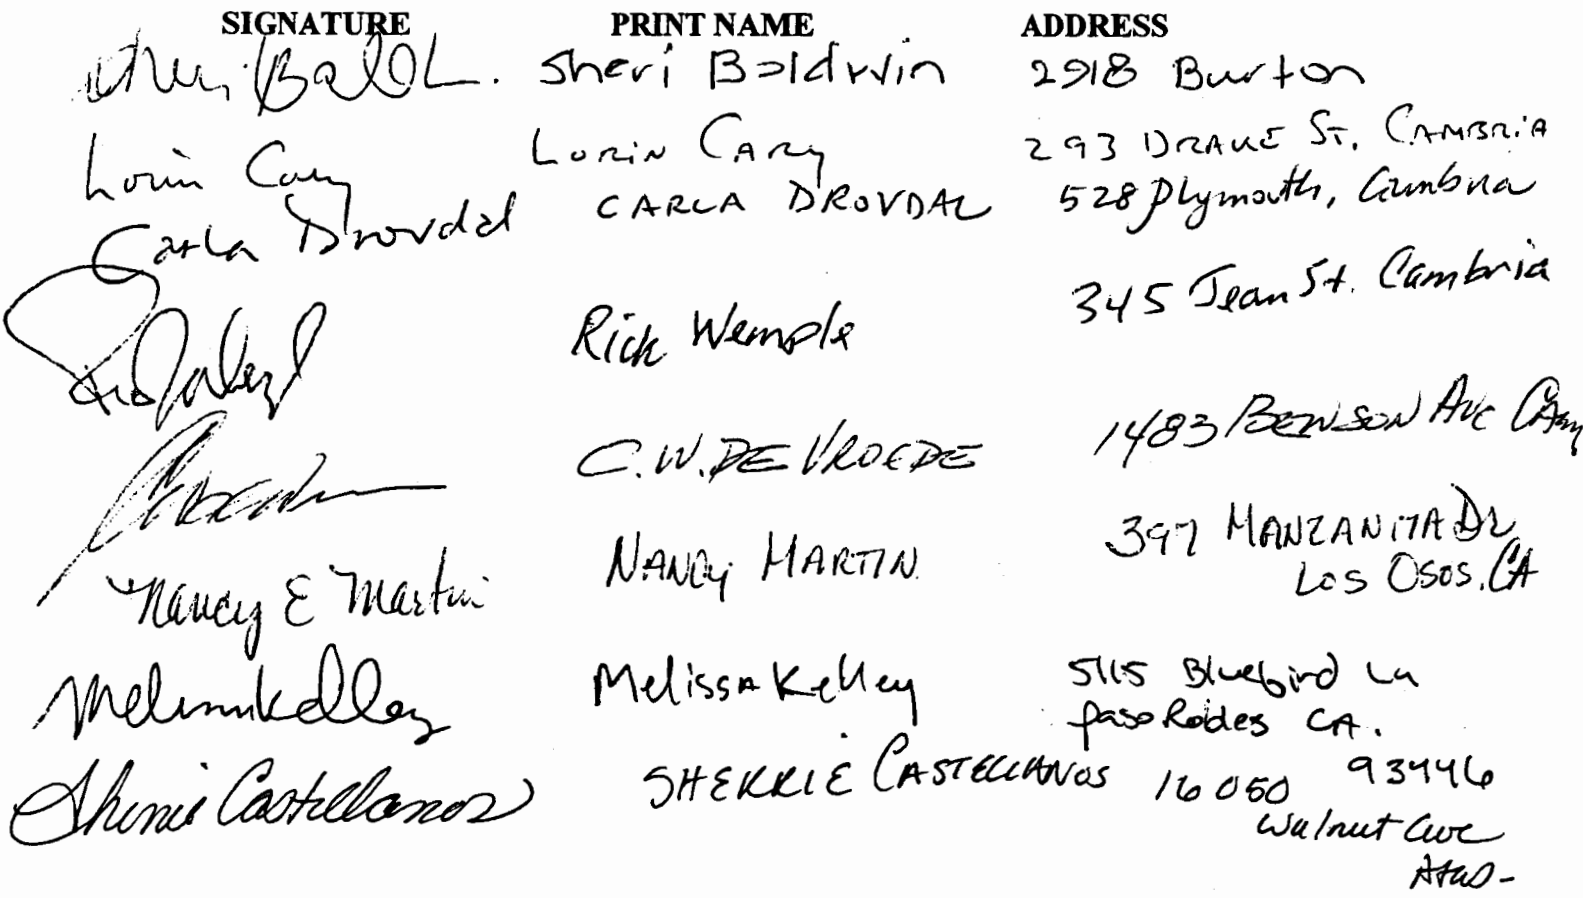 SIGNATURE PRINT NAME ADDRESS
Sheri Baldwin 2918 Burton
Lorin Cary Lorin Cary 293 Drake St. Cambria
Carla Drovdal Carla Drovdal 528 Plymouth, Cambria
Rick Wemple 345 Jean St. Cambria
C.W. De Vroede 1483 Benson Ave Cam
Nancy E Martin Nancy Martin 397 Manzanita Dr
Los Osos, CA
Melissa Kelley Melissa Kelley 5115 Bluebird Ln
Paso Robles CA.
93446
Sherrie Castellanos Sherrie Castellanos 16050
Walnut Ave
Atas-